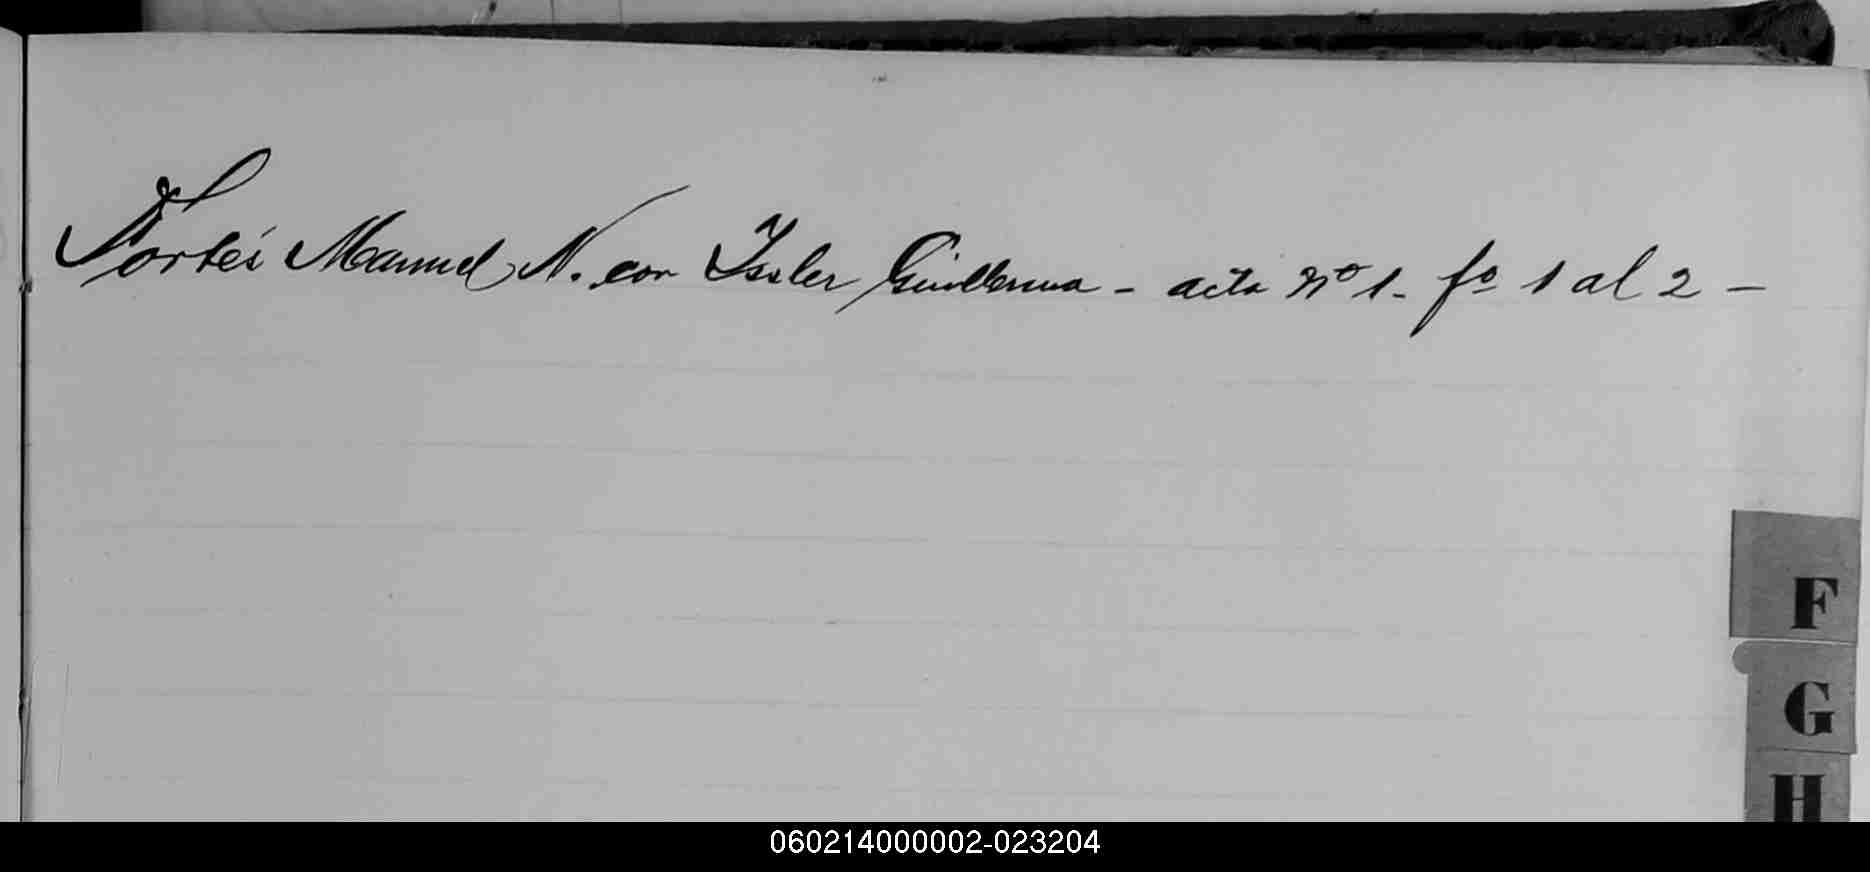 Fortés Manuel N. con Issler Guillerma - acta nº 1 - fº 1 al 2 -
F
G
H
060214000002-023204